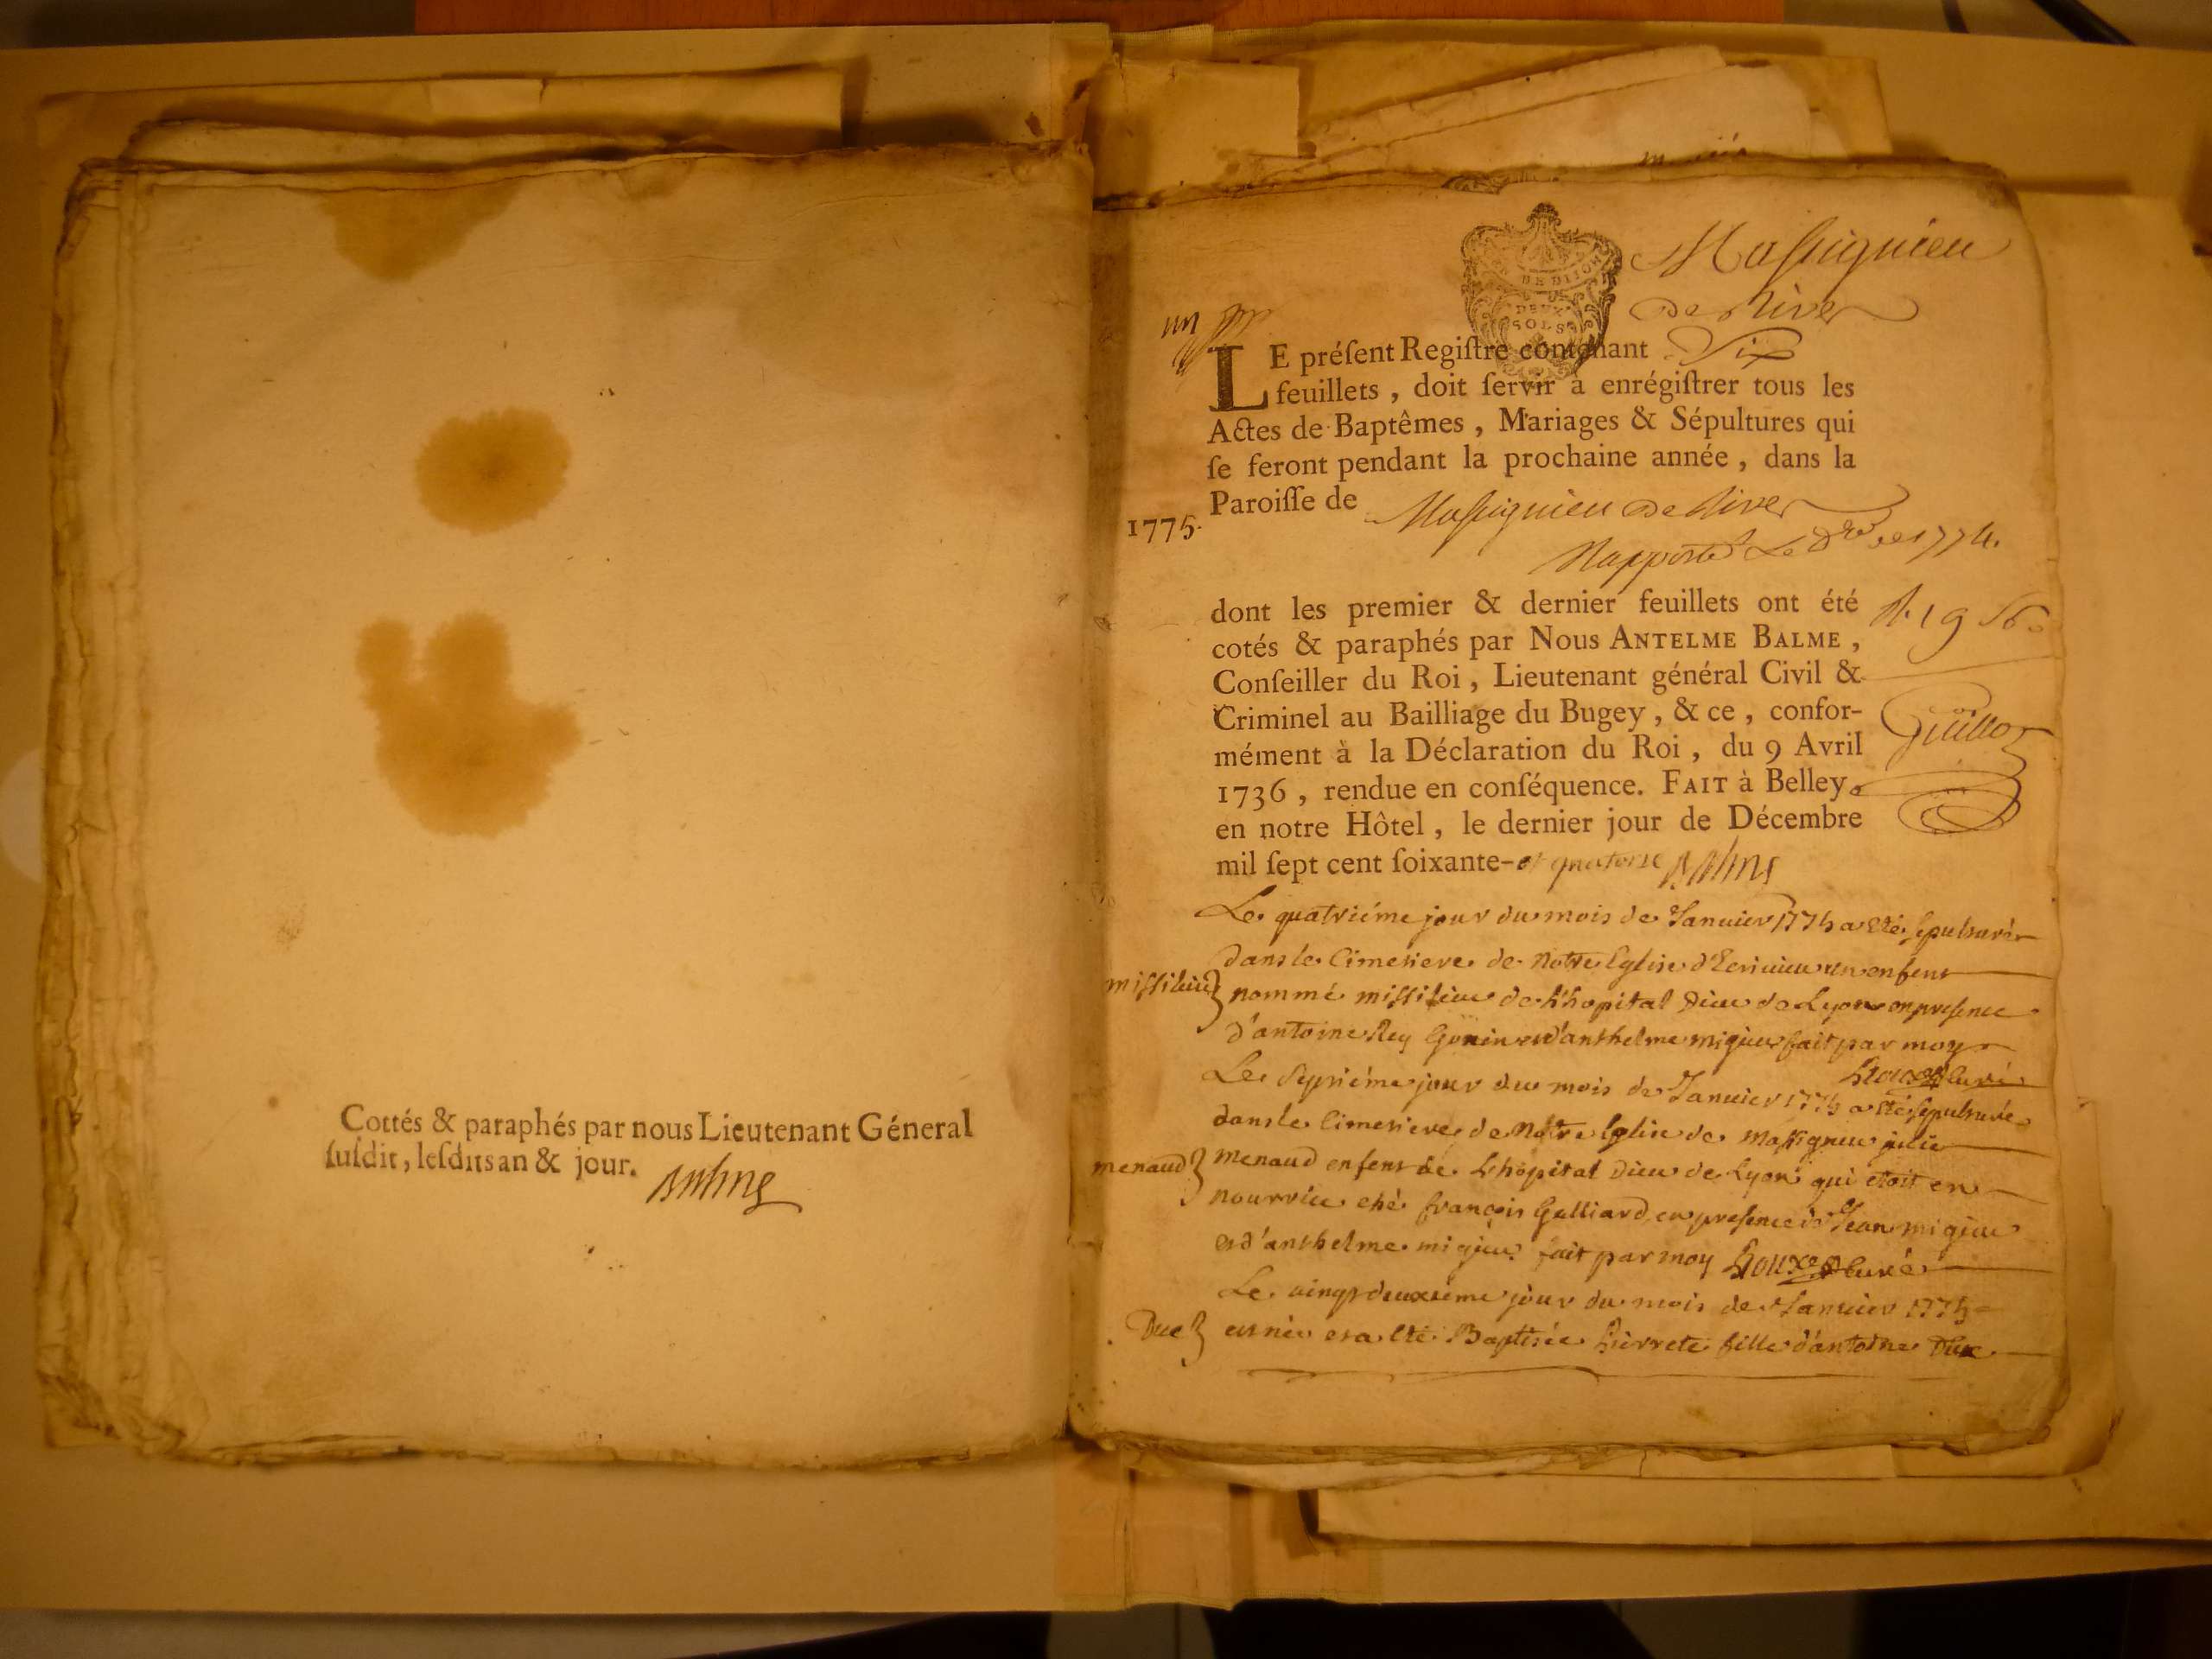 Cottés & paraphés par nous Lieutenant Géneral
ſuſdit, leſdits an & jour.
Balme
Massignieu
de Rives
DE DIJON
DEUX
SOLS
un
LE préſent Regiſtre contenant Six
feuillets, doit ſervir à enrégiſtrer tous les
Actes de Baptêmes, Mariages & Sépultures qui
ſe feront pendant la prochaine année, dans la
Paroiſſe de Massignieu de Rives
1775.
Rapporté Le 1774.
dont les premier & dernier feuillets ont été
cotés & paraphés par Nous ANTELME BALME,
Conſeiller du Roi, Lieutenant général Civil &
Criminel au Bailliage du Bugey, & ce, confor-
mément à la Déclaration du Roi, du 9 Avril
1736, rendue en conſéquence. FAIT à Belley
en notre Hôtel, le dernier jour de Décembre
mil ſept cent ſoixante-et quatorze Balme
Guillot
Le quatriéme jour du mois de Januier 1775 a eté sepulturé
dans le Cimetiere de Notre Eglise d'Ecriuieu un enfent
missilieu
nommé missilieu de L'hopital Dieu de Lyon en presence
d'antoine Rey Gonin et d'anthelme migieu fait par moy
Curé
Le septiéme jour du mois de Januier 1775 a eté sepulturée
dans le Cimetiere de Notre Eglise de Massignieu julie
menaud
menaud enfent de L'hopital Dieu de Lyon qui etoit en
nourrice ché françois Galliard en presence de Jean migieu
et d'anthelme migieu fait par moy Curé
Le vingt deuxiéme jour du mois de Januier 1775
Duc
est née et a eté Baptisée Pierrete fille d'antoine Duc